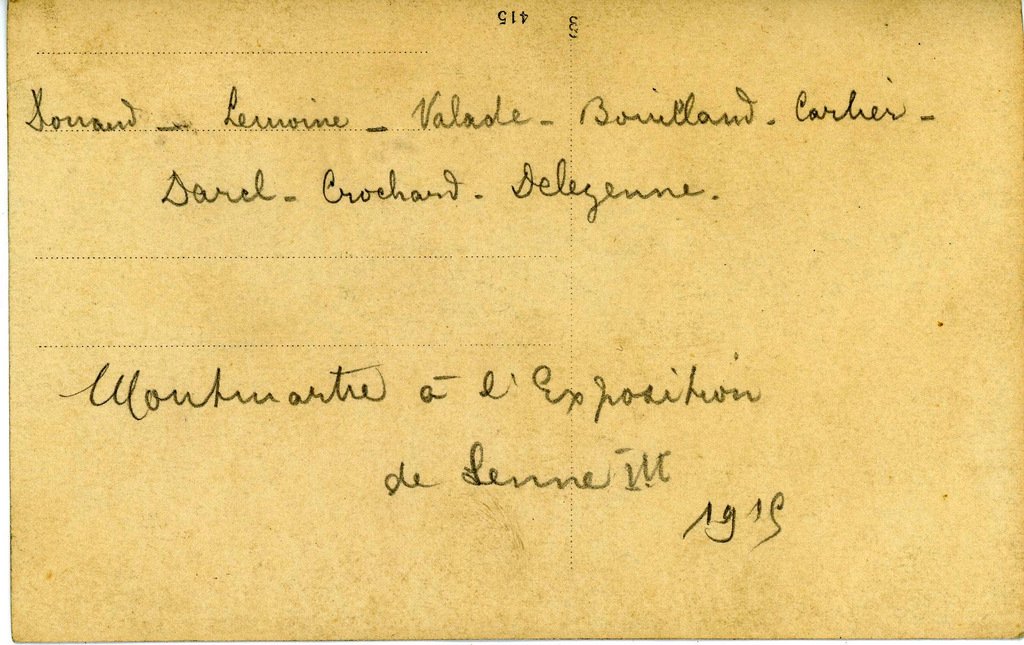 415 3
Douaud - Lemoine - Valade - Bouilland - Carlier -
Darel - Crochard - Delezenne.
Montmartre à l'Exposition
de Senne III
1915